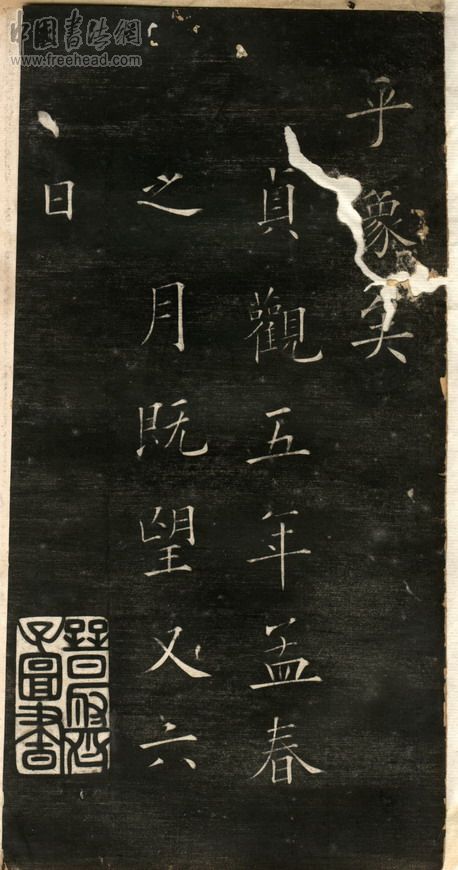 乎象矣
貞觀五年孟春
之月既望又六
日
中國書法網
www.freehead.com